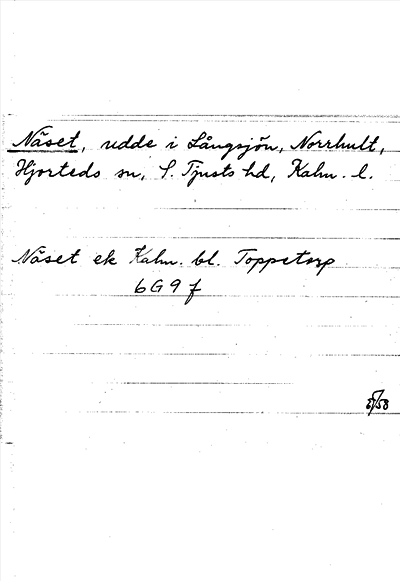 Näset, udde i Långsjön, Norrhult,
Hjorteds sn, S. Tjusts hd, Kalm. l.
Näset ek Kalm. bl. Toppetorp
6G9f